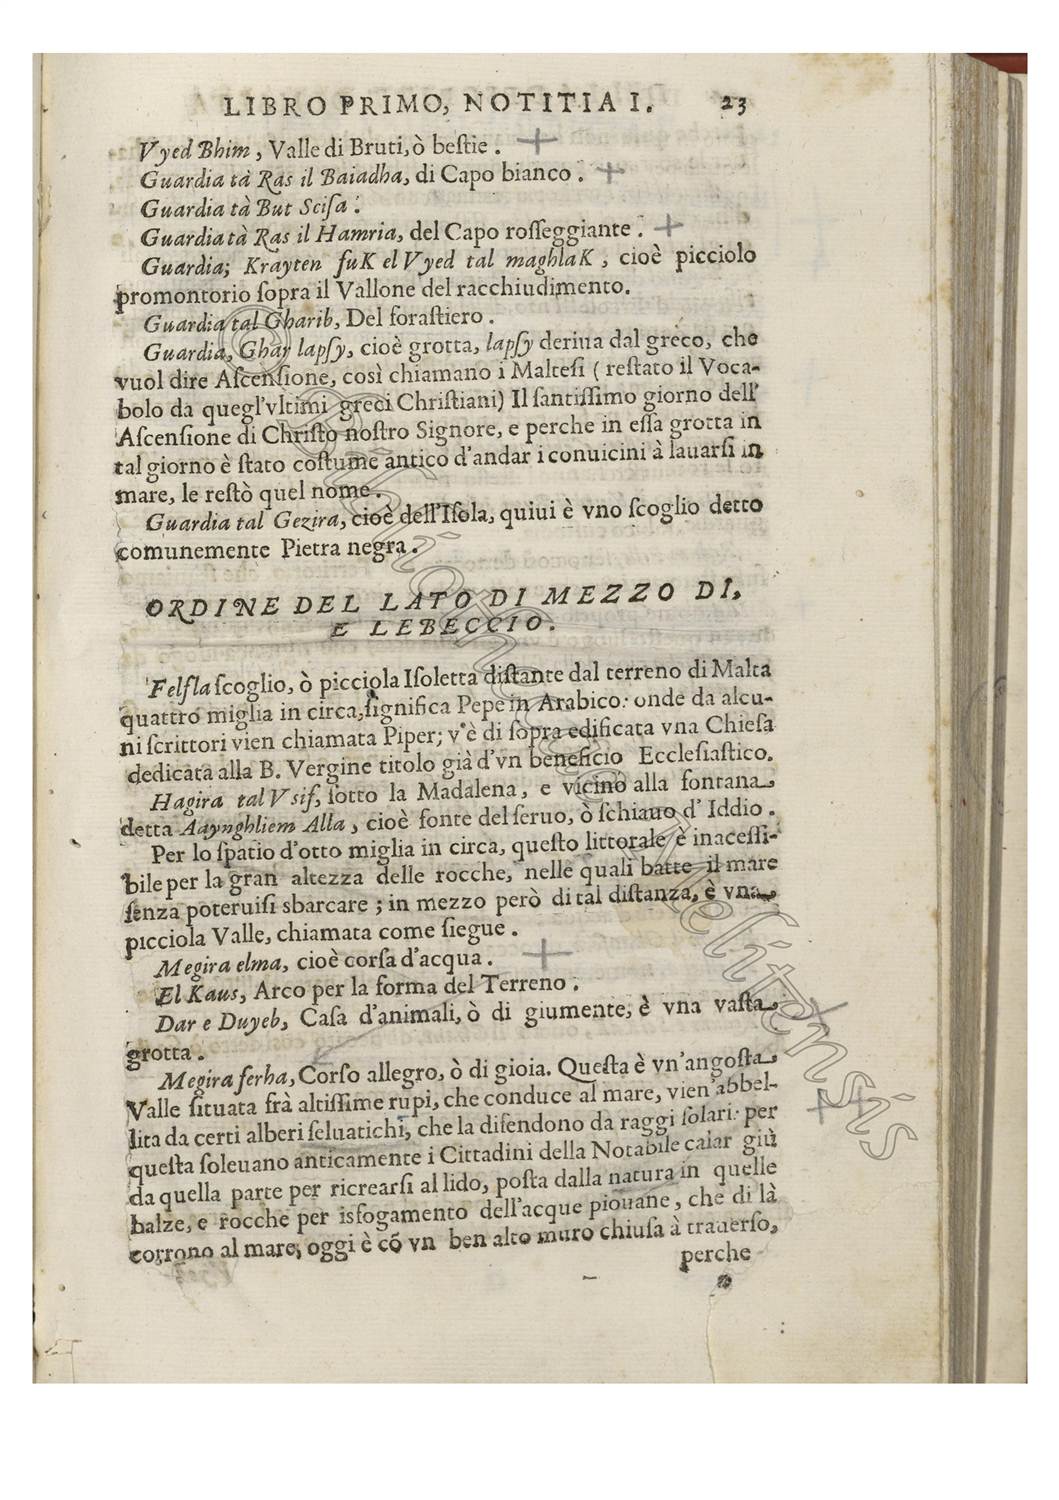 LIBRO PRIMO, NOTITIA I. 23
Vyed Bhim, Valle di Bruti, ò beſtie.
Guardia tà Ras il Baiadha, di Capo bianco.
Guardia tà But Sciſa.
Guardia tà Ras il Hamria, del Capo roſſeggiante.
Guardia; Krayten fuK el Vyed tal maghlaK, cioè picciolo
promontorio ſopra il Vallone del racchiudimento.
Guardia tal Gharib, Del foraſtiero.
Guardia, Ghar lapſy, cioè grotta, lapſy deriua dal greco, che
vuol dire Aſcenſione, così chiamano i Malteſi (reſtato il Voca-
bolo da quegl'vltimi greci Chriſtiani) Il ſantiſſimo giorno dell'
Aſcenſione di Chriſto noſtro Signore, e perche in eſſa grotta in
tal giorno è ſtato coſtume antico d'andar i conuicini à lauarſi in
mare, le reſtò quel nome.
Guardia tal Gezira, cioè dell'Iſola, quiui è vno ſcoglio detto
comunemente Pietra negra.
ORDINE DEL LATO DI MEZZO DI,
E LEBECCIO.
Felfla ſcoglio, ò picciola Iſoletta diſtante dal terreno di Malta
quattro miglia in circa, ſignifica Pepe in Arabico: onde da alcu-
ni ſcrittori vien chiamata Piper; v'è di ſopra edificata vna Chieſa
dedicata alla B. Vergine titolo già d'vn beneficio Eccleſiaſtico.
Hagira tal Vsif, ſotto la Madalena, e vicino alla fontana
detta Aaynghliem Alla, cioè fonte del ſeruo, ò ſchiauo d' Iddio.
Per lo ſpatio d'otto miglia in circa, queſto littorale è inaceſſi-
bile per la gran altezza delle rocche, nelle quali batte il mare
ſenza poteruiſi sbarcare; in mezzo però di tal diſtanza, è vna
picciola Valle, chiamata come ſiegue.
Megira elma, cioè corſa d'acqua.
El Kaus, Arco per la forma del Terreno.
Dar e Duyeb, Caſa d'animali, ò di giumente, è vna vaſta
grotta.
Megira ferha, Corſo allegro, ò di gioia. Queſta è vn'angoſta
Valle ſituata frà altiſſime rupi, che conduce al mare, vien'abbel-
lita da certi alberi ſeluatichi, che la difendono da raggi ſolari: per
queſta ſoleuano anticamente i Cittadini della Notabile calar giù
da quella parte per ricrearſi al lido, poſta dalla natura in quelle
balze, e rocche per isfogamento dell'acque piouane, che di là
corrono al mare, oggi è cõ vn ben alto muro chiuſa à trauerſo,
perche
Bibliotheca Melitensis